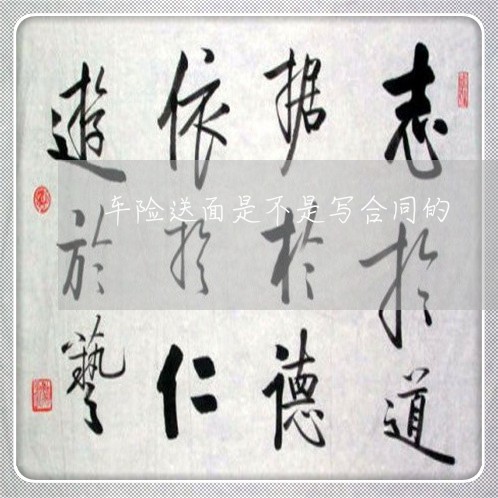 志於道
据於德
依於仁
遊於藝
车险送面是不是写合同的